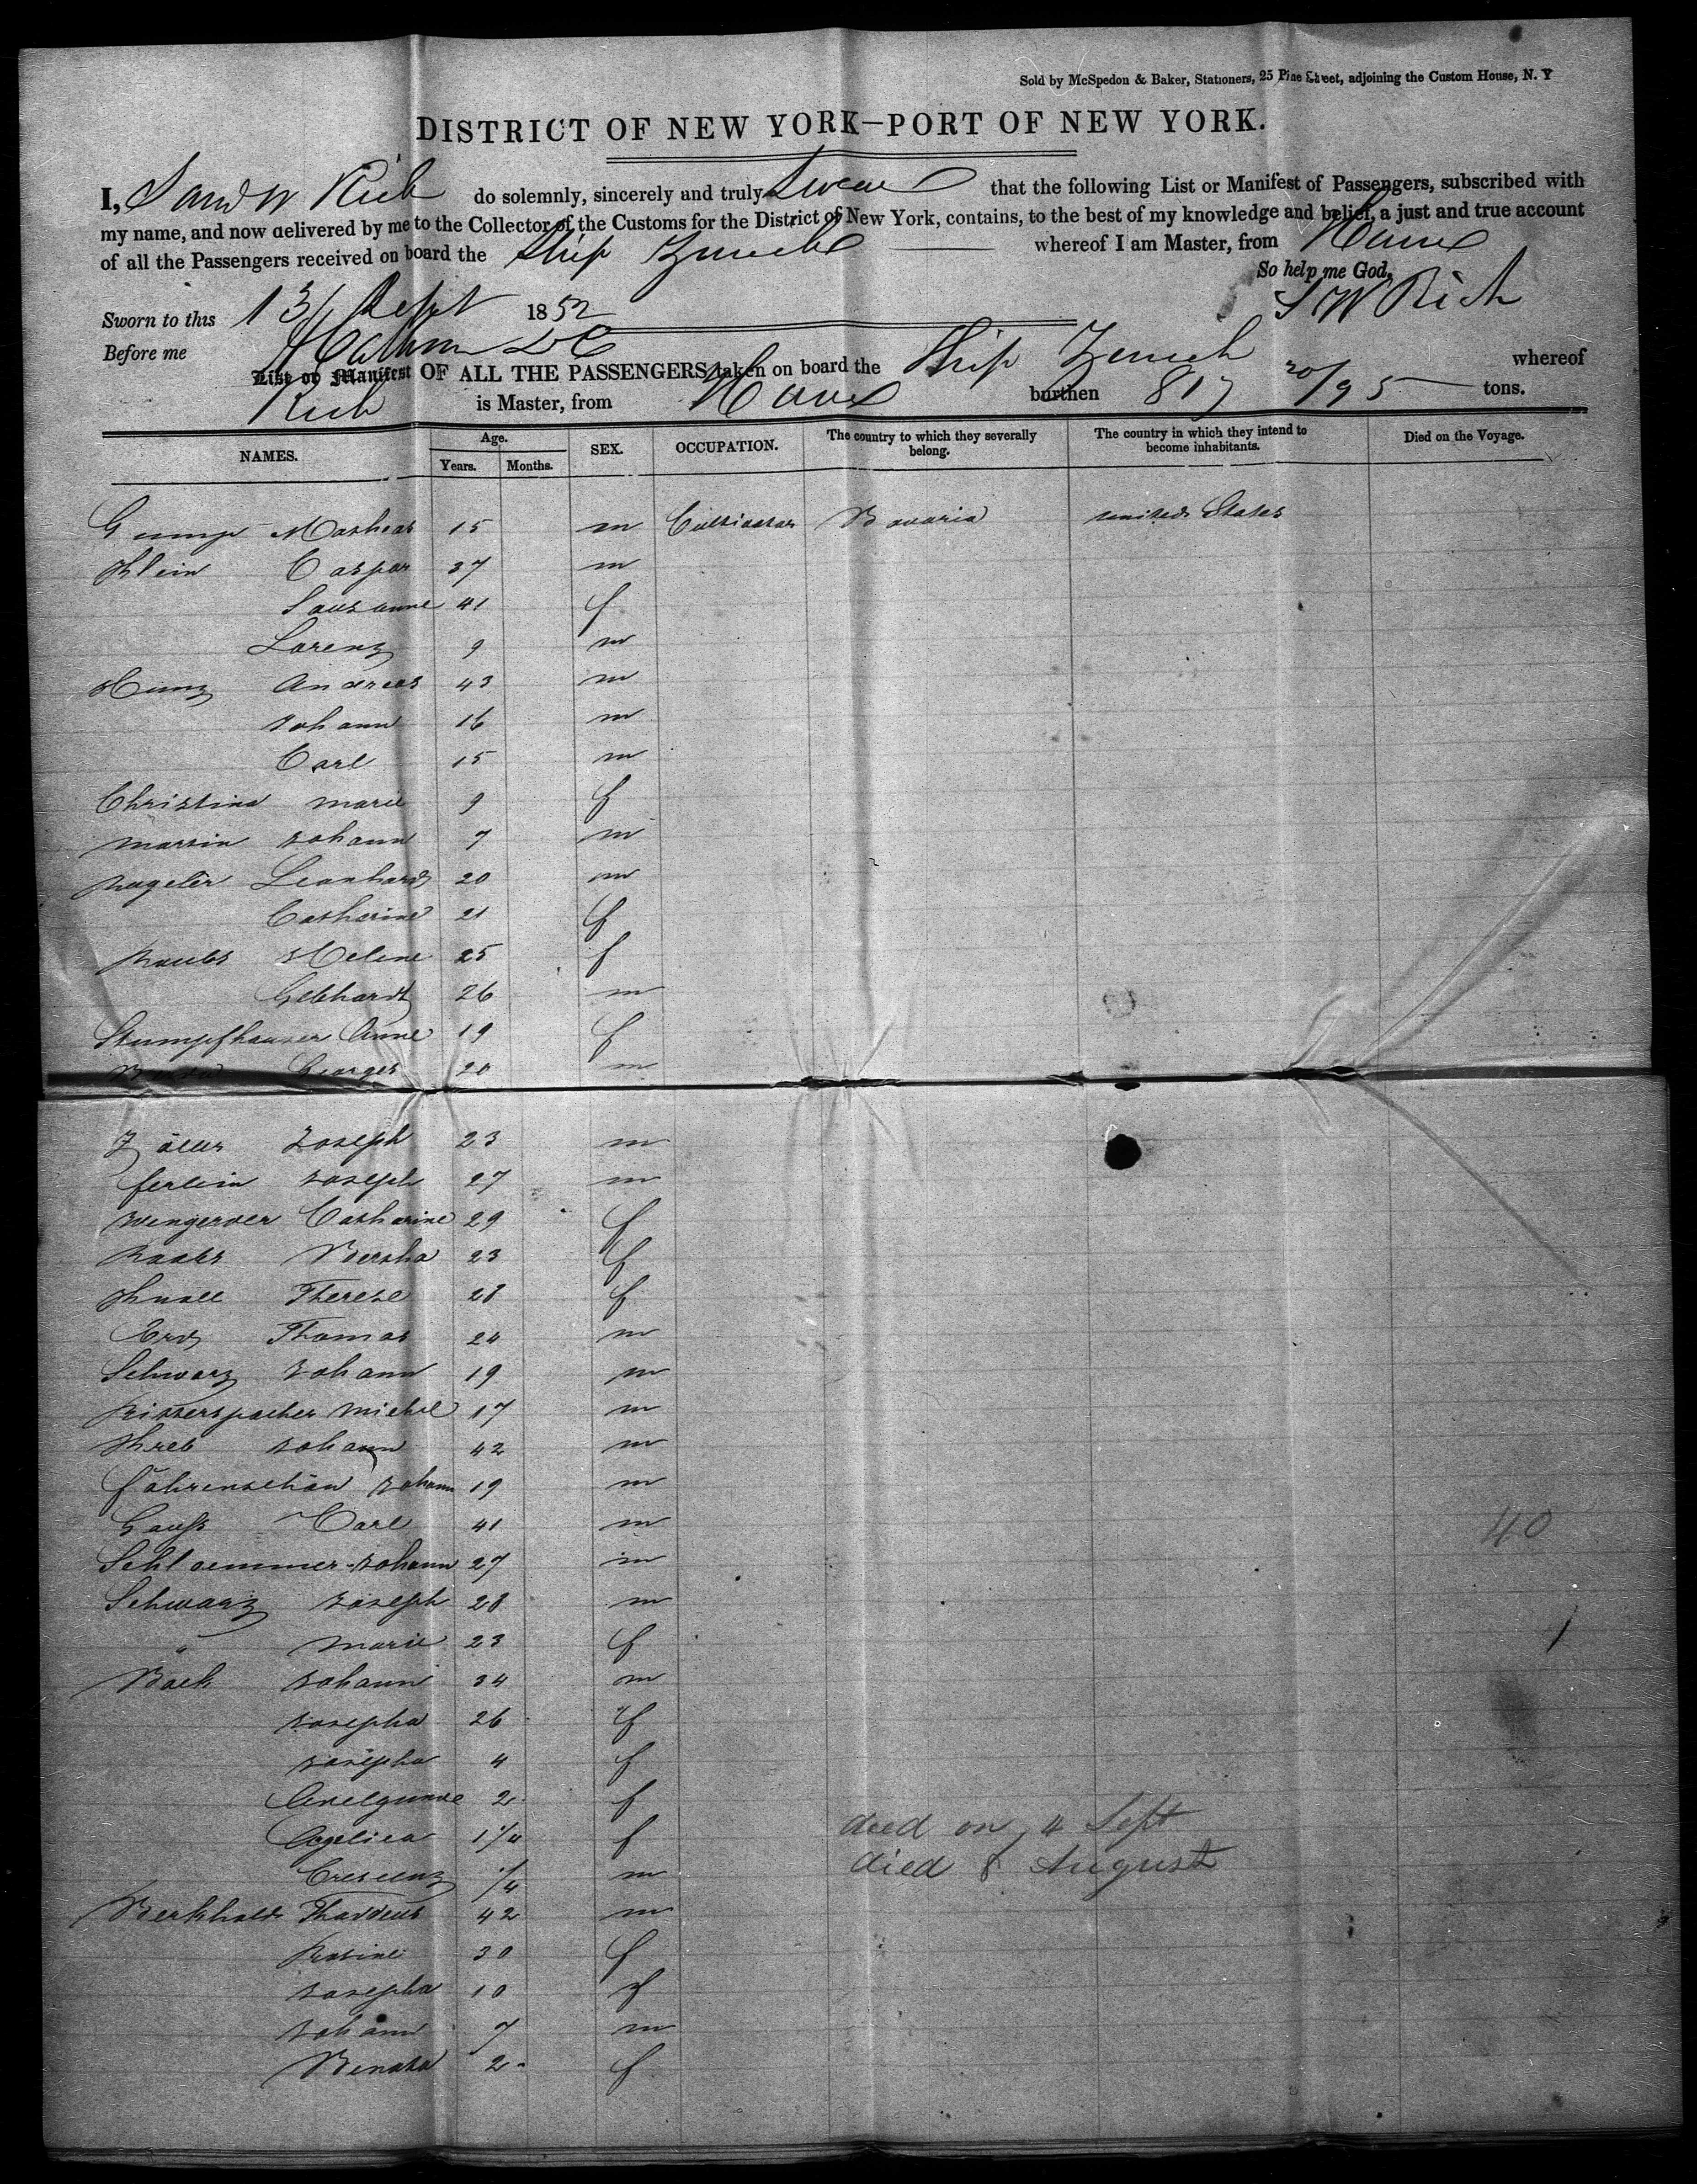 Sold by McSpedon & Baker, Stationers, 25 Pine Street, adjoining the Custom House, N. Y
DISTRICT OF NEW YORK—PORT OF NEW YORK.
I, Rich do solemnly, sincerely and truly Swear that the following List or Manifest of Passengers, subscribed with
my name, and now delivered by me to the Collector of the Customs for the District of New York, contains, to the best of my knowledge and belief, a just and true account
of all the Passengers received on board the Ship Zurich whereof I am Master, from Havre
So help me God,
S W Rich
Sworn to this 13 Sept 1852
Before me
List or Manifest OF ALL THE PASSENGERS taken on board the Ship Zurich whereof
Rich is Master, from Havre burthen 817 20/95 tons.
NAMES. Age. Years. Months. SEX. OCCUPATION. The country to which they severally belong. The country in which they intend to become inhabitants. Died on the Voyage.
Gump Matheas 15 m Cultivator Bavaria united States
Klein Caspar 37 m
Sausanne 41 f
Lorenz 9 m
Hunz Andreas 43 m
Johann 16 m
Carl 15 m
Christina marie 9 f
martin Johann 7 m
Leonhard 20 m
Catherine 21 f
Helene 25 f
Gebhardt 26 m
Stumpfhauser Anne 19 f
Georges 20 m
Zöller Joseph 23 m
ferlein Joseph 27 m
Catharine 29 f
Bertha 23 f
Therese 28 f
Thomas 24 m
Schwarz Johann 19 m
Ritterspacher michel 17 m
Kreb Johann 42 m
fährenschön Johann 19 m
Gauß Carl 41 m
40
Schloemmer Johann 27 m
Schwarz Joseph 28 m
" marie 23 f
1
Bock Johann 34 m
Josepha 26 f
Josepha 4 f
Adelgunde 2 f
Agelica 1 1/4 f died on 4 Sept
Crescenz 1/4 m died 8 August
Berkhold Thaddeus 42 m
Rosine 30 f
Josepha 10 f
Johann 7 m
Renata 2 f